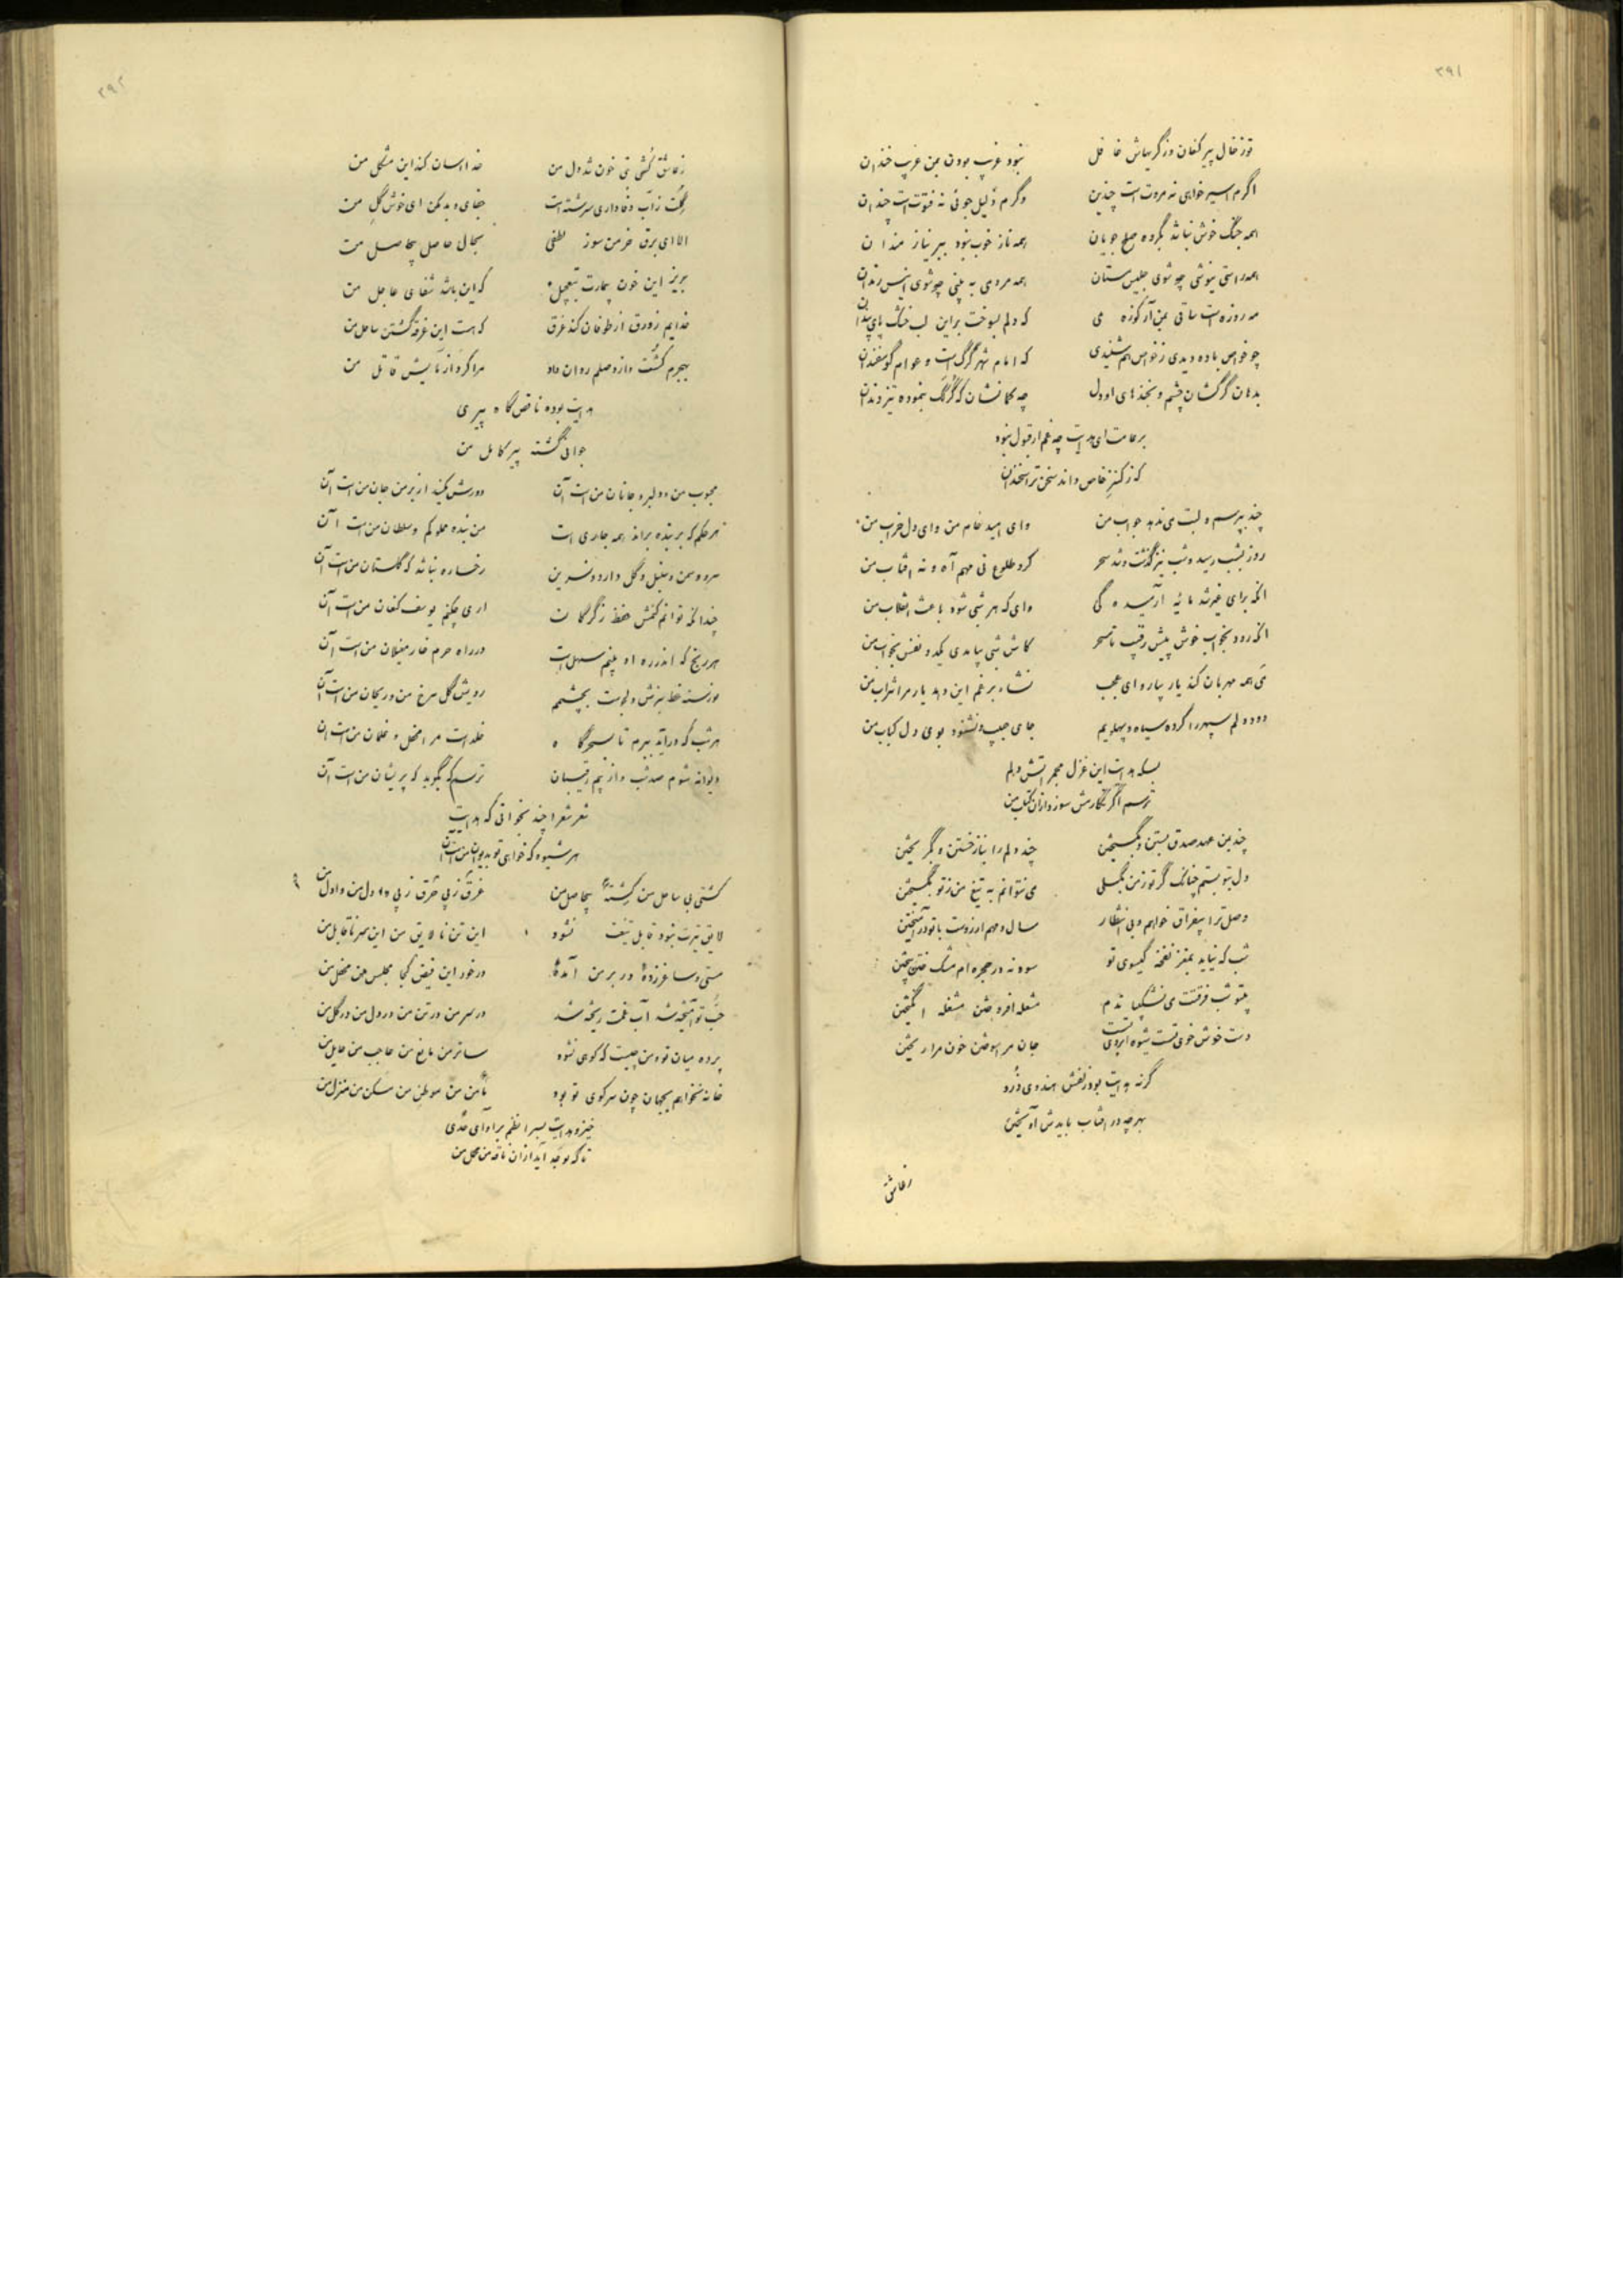 ۳۹۱
تو ز حال پیر کنعان و ز گریهاش غافل نبود غریب بودن بمن غریب خندان
اگرم اسیر خواهی نه مروت است چندین وگرم ذلیل جوئی نه فتوت است چندان
همه جنگ خوش نباشد بگروه صلح جویان همه ناز خوب نبود بر نیازمندان
همه راستی نیوشی چو شوی جلیس مستان همه مردمی به بینی چو شوی انیس رندان
مه روزه است ساقی بمن آر کوزه می که دلم بسوخت براین لب خشک
چو خواص باده دیدی ز خواص هم شنیدی که امام شهر گرگ است و عوام گوسفندان
بدهان گرگشان چشم و بخندهای او دل چه کمانشان که گرگک بنموده تیز دندان
بر عامت ای هدایت چه غم ار قبول نبود
که ز کنز خاص داند سخن تر اسخندان
چند بپرسم و لبت می ندهد جواب من وای امید خام من وای دل خراب من
روز بشب رسید و شب نیز گذشت و شد سحر کرد طلوع نی مهم آه و نه افتاب من
انکه برای غیر شد مایه آرمیدگی وای که هر شبی شود باعث انقلاب من
انکه رود بخواب خوش پیش رقیب تا سحر کاش شبی بیامدی یکدو نفس بخواب من
می همه مهربان کند یار بیار وای عجب نشاء برغم این دهد یار مرا شراب من
دود دلم سپهر را کرده سیاه و پهلویم جای حبیب و نشنود بوی دل کباب من
بسکه هدایت این غزل مجمر اتش دلم
ترسم اگر نگارمش سوزد ازان کتاب من
چند بمن عهد صدق بستن و بگسیختن چند دلم را بناز خستن و بگریختن
دل بتو بستم چنانک گر تو ز من بگسلی می نتوانم به تیغ من ز تو بگسیختن
وصل ترا بیفراق خواهم و بی انتظار سال و مهم ارزوست با تو در آمیختن
شب که نیاید بمغز نفخه گیسوی تو سود نه در حجره ام مشک ختن بیختن
بیتو شب فرقتت می نشکیباندم مشعله افروختن مشغله انگیختن
دست خوش خوی تست شیوه ابروی تست جان مرا سوختن خون مرا ریختن
گرنه هدایت بود زلفش هندوی دزد
بهر چه در افتاب بایدش آویختن
ز عاشق
۳۹۲
ز عاشق کشتنی خون شد دل من خدا اسان کند این مشکل من
گلت ز آب وفاداری سرشته است جفای و بد مکن ای خوش گل من
الا ای برق خرمن سوز لطفی بحال حاصل بیحاصل من
بریز این خون بیمارت بتعجیل که این باشد شفای عاجل من
خدایم زورق از طوفان کند غرق که هست این غرقه گشتن ساحل من
بهجرم کشت و از وصلم روان داد مرا کرد ازمایش قاتل من
هدایت بوده ناقص گاه پیری
جوانی گشته پیر کامل من
محبوب من و دلبر و جانان من است آن دورش مکنید از بر من جان من است آن
هر حکم که بر بنده براند همه جاری است من بنده مملوکم و سلطان من است آن
سرو و سمن و سنبل و گل دارد و نسرین رخساره نباشد که گلستان من است آن
چندانکه توانم کنمش حفظ ز گرگان اری چکنم یوسف کنعان من است آن
هر رنج که اندر ره او بینم سهل است در راه حرم خار مغیلان من است آن
نورسته خط سبزش دلجوست بچشمم رویش گل سرخ من و ریحان من است آن
هر شب که درآید ببرم تا بسحرگاه خلد است مرا محفل و غلمان من است ان
دیوانه شوم صد شب و از بیم رقیبان ترسم که بگوید که پریشان من است آن
شعر شعرا چند نخوانی که هدایت
هر شیوه که خواهی تو بدیوان من است آن
کشتی بی ساحل من کشته بیحاصل من غرق ز پی حرق ز پی وا دل من وا دل من
لایق تیرت نبود قابل تیغت نشود این تن نالایق من این سر ناقابل من
مستی و ساغر زده در بر من آمده درخور این فیض کجا مجلس من محفل من
حب تو آمیخته شد آب غمت ریخته شد در سر من در تن من در دل من در گل من
پرده میان تو و من چیست که گوی نشود ساتر من مانع من حاجب من حایل من
خانه نخواهم بجهان چون سر کوی تو بود مأمن من موطن من مسکن من منزل من
خیز و هدایت بسرا نظم برآوای حدی
تا که بوجد آید ازان ناقه من محمل من